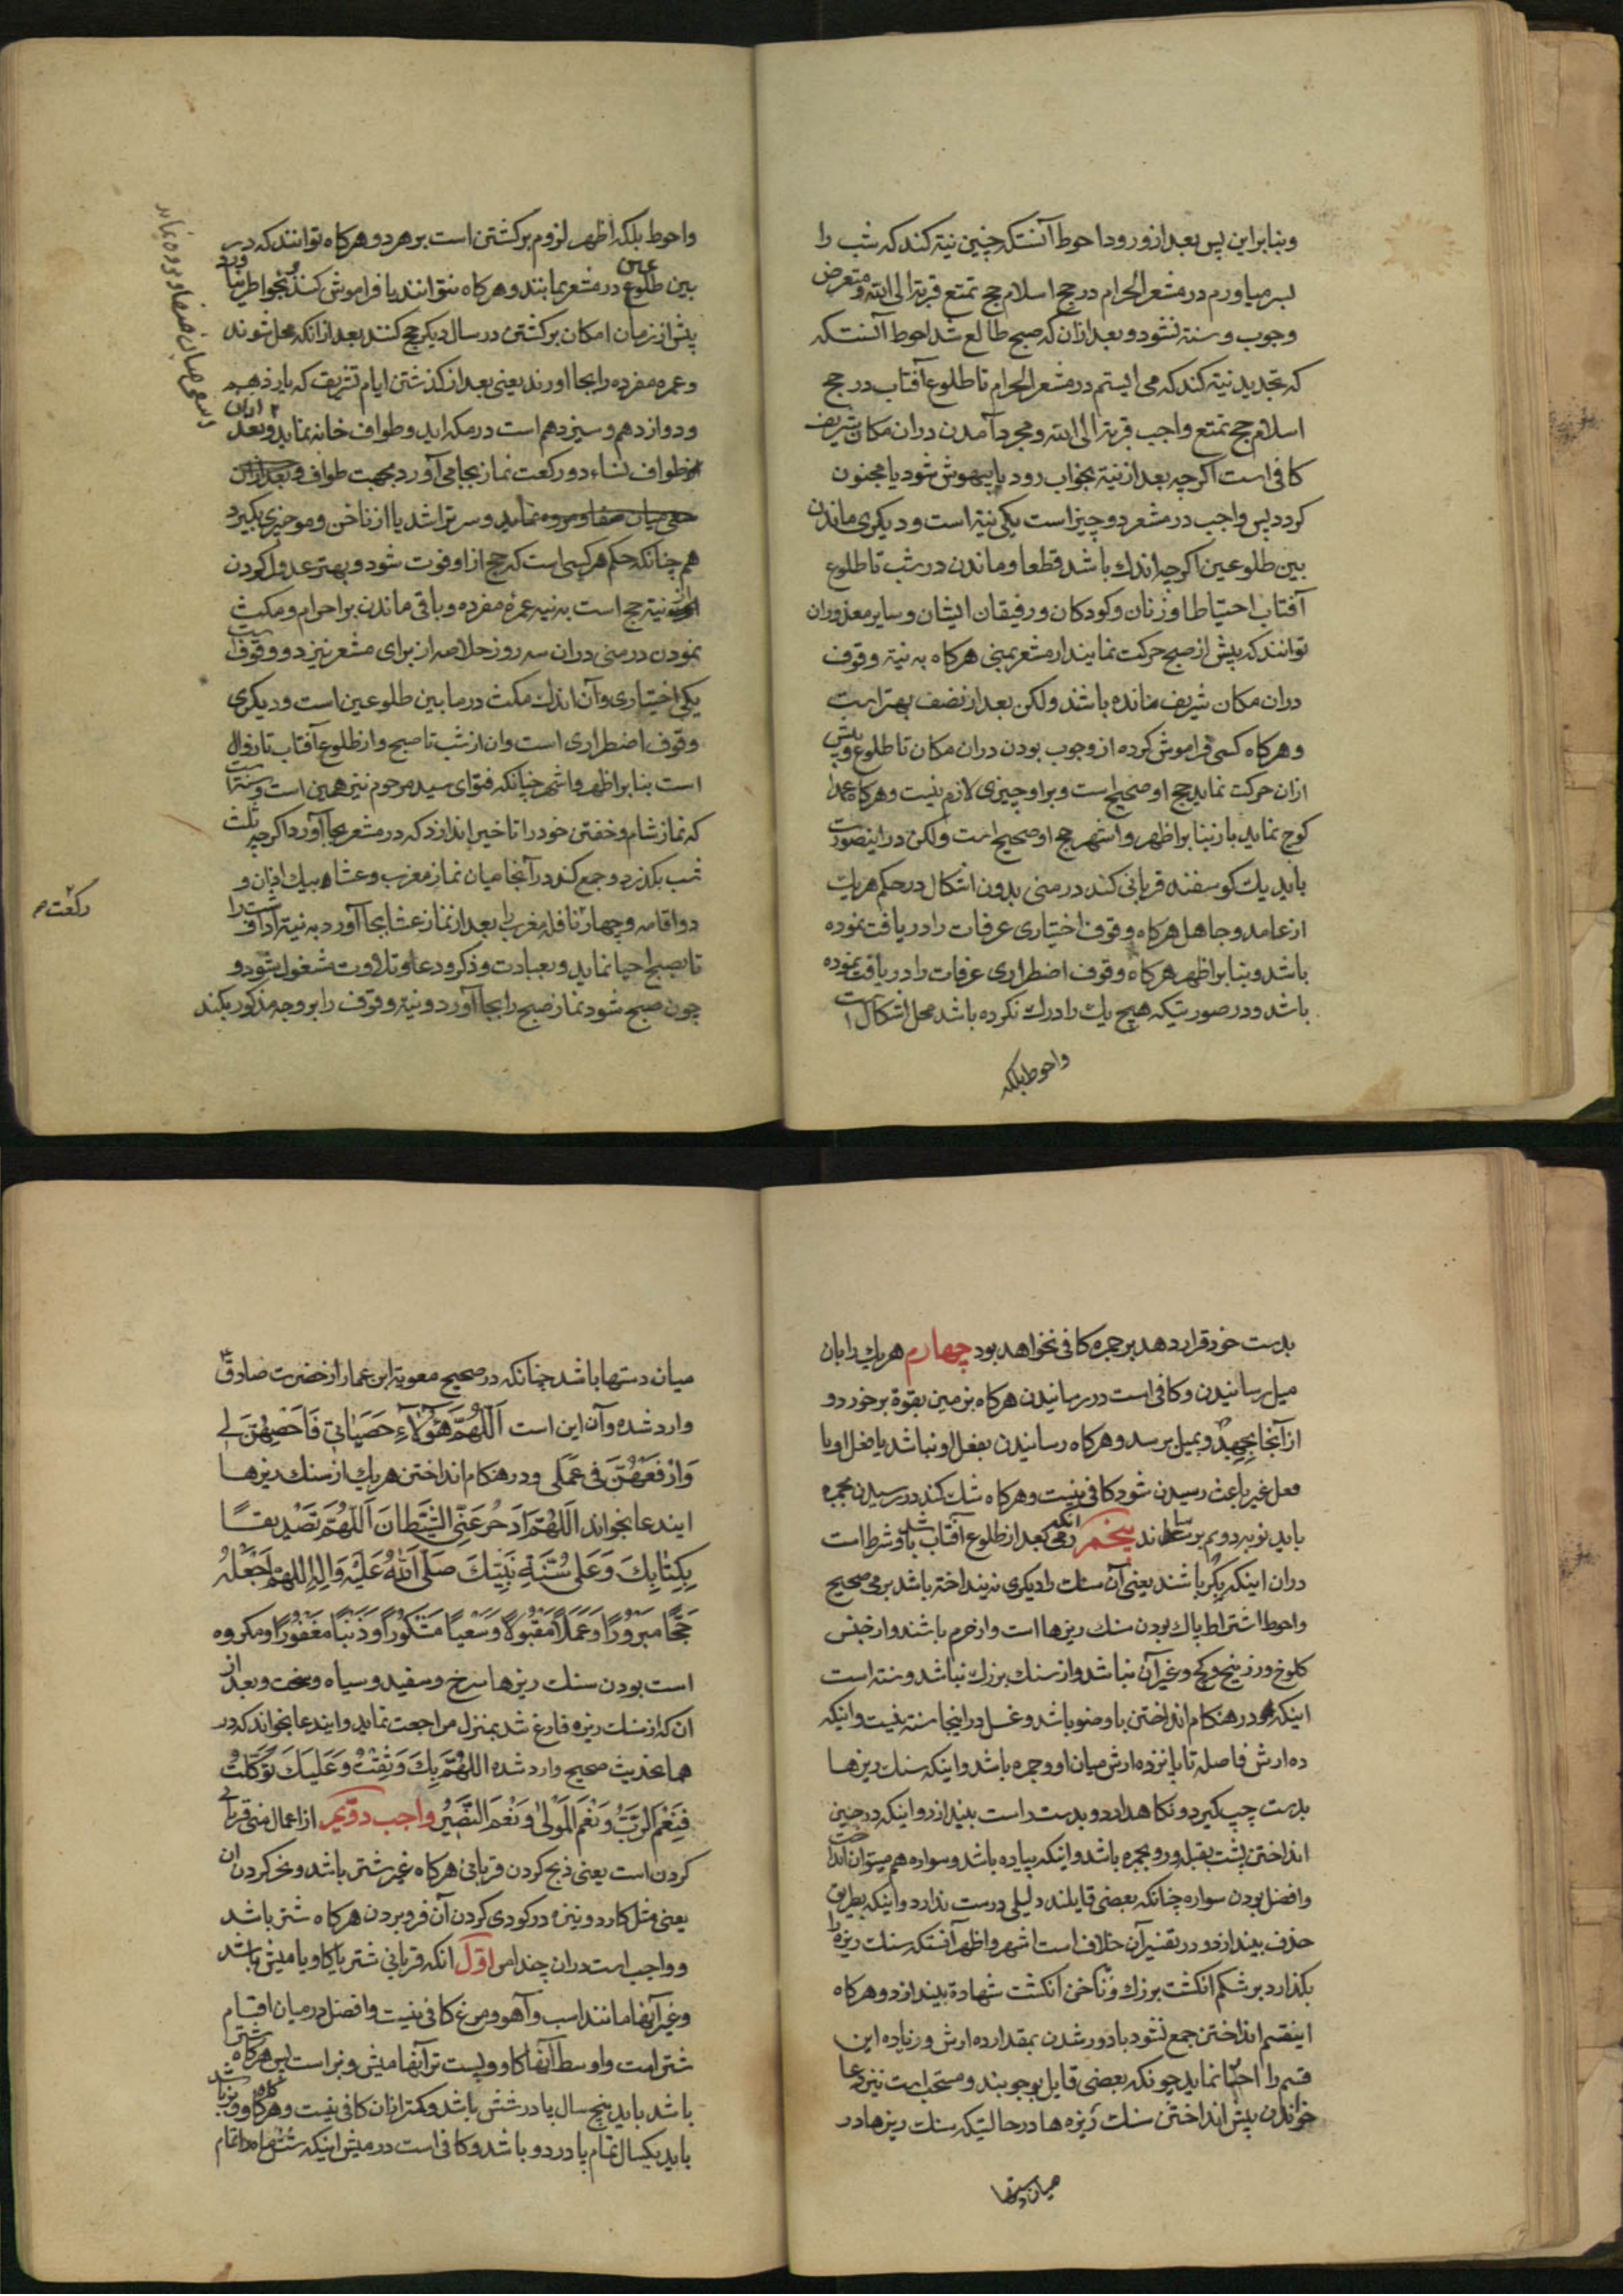 وبنابراین پس بعد از ورود احوط آنستکه چنین نیة کند که شب را
بسر میاورم در مشعر الحرام در حج اسلام حج تمتع قربة الی الله ومتعرض
وجوب و سنة نشود و بعد ازان که صبح طالع شد احوط آنستکه
که تجدید نیة کند که می ایستم در مشعر الحرام تا طلوع آفتاب در حج
اسلام حج تمتع واجب قربة الی الله ومجرد آمدن دران مکان شریف
کافی است اکرچه بعد از نیة بخواب رود یا بیهوش شود یا مجنون
کردد پس واجب در مشعر دو چیز است یکی نیة است و دیکری ماندن
بین طلوعین اکرچه اندك باشد قطعا وماندن در شب تا طلوع
آفتاب احتیاطا وزنان وکودکان ورفیقان ایشان وسایر معذوران
توانند که پیش از صبح حرکت نمایند از مشعر بمنی هرکاه به نیة وقوف
دران مکان شریف مانده باشند ولکن بعد از نصف بهتر است
وهرکاه کسی فراموش کرده از وجوب بودن دران مکان تا طلوع وپیش
ازان حرکت نماید حج او صحیح است وبر او چیزی لازم نیست وهرکاه عمدا
کوچ نماید باز بنابر اظهر واشهر حج او صحیح است ولکن در اینصورت
باید یك کوسفند قربانی کند در منی بدون اشکال در حکم هریك
از عامد وجاهل هرکاه وقوف اختیاری عرفات را دریافت نموده
باشد وبنابر اظهر هرکاه وقوف اضطراری عرفات را دریافت نموده
باشد ودر صورتیکه هیچ یك را درك نکرده باشد محل اشکال است
واحوط بلکه
واحوط بلکه اظهر لزوم برکشتن است بر هر دو وهرکاه توانند که در
بین طلوعین در مشعر بمانند وهرکاه نتوانند یا فراموش کنند وبخواطر نیاورد
پیش از زمان امکان برکشتن در سال دیکر حج کنند بعد از انکه محل شوند
وعمره مفرده را بجا اورند یعنی بعد از کذشتن ایام تشریق که یازدهم
ودوازدهم وسیزدهم است در مکه اید وطواف خانه نماید وبعد ازان
طواف نساء دو رکعت نماز بجا می آورد بجهت طواف وبعد ازان
سعی میان صفا ومروه نماید وسر تراشد یا از ناخن ومو چیزی بکیرد
هم چنانکه حکم هر کسی است که حج از او فوت شود وبهتر عدول کردن
از نیة حج است به نیه عمره مفرده وباقی ماندن بر احرام ومکث
نمودن در منی دران سه روز خلاصه از برای مشعر نیز دو وقوف است
یکی اختیاری وآن اندك مکث در ما بین طلوعین است ودیکری
وقوف اضطراری است وان از شب تا صبح واز طلوع آفتاب تا زوال
است بنابر اظهر واشهر چنانکه فتوای سید مرحوم نیز همین است وسنة است
که نماز شام وخفتن خود را تاخیر اندازد که در مشعر بجا آورد اکرچه ثلث
شب بکذرد وجمع کند در آنجا میان نماز مغرب وعشاء بیك اذان و
دو اقامه وچهار نافله مغرب را بعد از نماز عشا بجا آورد به نیة ادا وشب را
تا بصبح احیا نماید وبعبادت وذکر ودعا وتلاوت مشغول شود و
چون صبح شود نماز صبح را بجا آورد ونیة وقوف را بر وجه مذکور بکند
وسعی میان صفا ومروه نماید
رکعت
بدست خود قرار دهد بر جمره کافی نخواهد بود چهارم هریك را بان
میل رسانیدن وکافی است در رسانیدن هرکاه بزمین بقوة برخورد و
از آنجا بجهد وبمیل برسد وهرکاه رسانیدن بفعل او نباشد یا فعل او با
فعل غیر باعث رسیدن شود کافی نیست وهرکاه شك کند در رسیدن بجمره
باید نوبه دویم برساند پنجم انکه رمی بعد از طلوع آفتاب باشد وشرط است
دران اینکه بکر باشند یعنی آن سنك را دیکری نینداخته باشد برمی صحیح
واحوط اشتراط پاك بودن سنك ریزها است واز حرم باشند واز جنس
کلوخ وزرنیخ وکج وغیر آن نباشد واز سنك بزرك نباشد وسنة است
اینکه در هنکام انداختن با وضو باشد وغسل در اینجا سنة نیست واینکه
ده ارش فاصله تا پانزده ارش میان او وجمره باشد واینکه سنك ریزها
بدست چپ کیرد ونکاهدارد وبدست راست بیندازد واینکه در حین
انداختن پشت بقبله ورو بجمره باشد واینکه پیاده باشد وسواره هم میتوان انداخت
وافضل بودن سواره چنانکه بعضی قایلند دلیلی درست ندارد واینکه بطریق
حذف بیندازد ودر تفسیر آن خلاف است اشهر واظهر آنستکه سنك ریزه را
بکذارد بر شکم انکشت بزرك وبناخن انکشت شهادة بیندازد وهرکاه
اینقسم انداختن جمع نشود با دور شدن بمقدار ده ارش وزیاده این
قسم را نماید چونکه بعضی قایل بوجوبند ومستحب است نیز دعا
خواندن پیش انداختن سنك ریزه ها در حالتیکه سنك ریزها در
میان دستها
میان دستها باشد چنانکه در صحیح معویة ابن عمار از حضرت صادق ع
وارد شده وآن این است اَللّهُمَّ هٰؤُلاءِ حَصَیاتی فَاَحْصِهُنَّ لی
وَارْفَعْهُنَّ فی عَمَلی ودر هنکام انداختن هریك از سنك ریزها
ایندعا بخواند اَللّهُمَّ ادْحَرْ عَنِّی الشَّیْطانَ اَللّهُمَّ تَصْدیقًا
بِکِتابِكَ وَعَلی سُنَّةِ نَبِیِّكَ صَلَّی اللهُ عَلَیْهِ وَآلِهِ اللهُمَّ اجْعَلْهُ
حَجًّا مَبْرُورًا وَعَمَلًا مَقْبُولًا وَسَعْیًا مَشْکُورًا وَذَنْبًا مَغْفُورًا ومکروه
است بودن سنك ریزها سرخ وسفید وسیاه وسخت وبعد از
ان که از سنك ریزه فارغ شد بمنزل مراجعت نماید وایندعا بخواند که در
همانحدیث صحیح وارد شده اللهُمَّ بِكَ وَثِقْتُ وَعَلَیْكَ تَوَکَّلْتُ
فَنِعْمَ الرَّبُّ وَنِعْمَ الْمَوْلٰی وَنِعْمَ النَّصیرُ واجب دویم از اعمال منی قربانی
کردن است یعنی ذبح کردن قربانی هرکاه غیر شتر باشد ونحر کردن ان
یعنی مثل کارد ونیزه در کودی کردن آن فرو بردن هرکاه شتر باشد
وواجب است دران چند امر اول انکه قربانی شتر یا کاو یا میش باشد
وغیر آنها مانند اسب وآهو ومرغ کافی نیست وافضل در میان اقسام
شتر است واوسط آنها کاو وپست تر آنها میش وبز است پس هرکاه شتر
باشد باید پنج سال یا در شش باشد وکمتر ازان کافی نیست وهرکاه کاو وبز باشد
باید یکسال تمام یا در دو باشد وکافی است در میش اینکه شش ماه را تمام